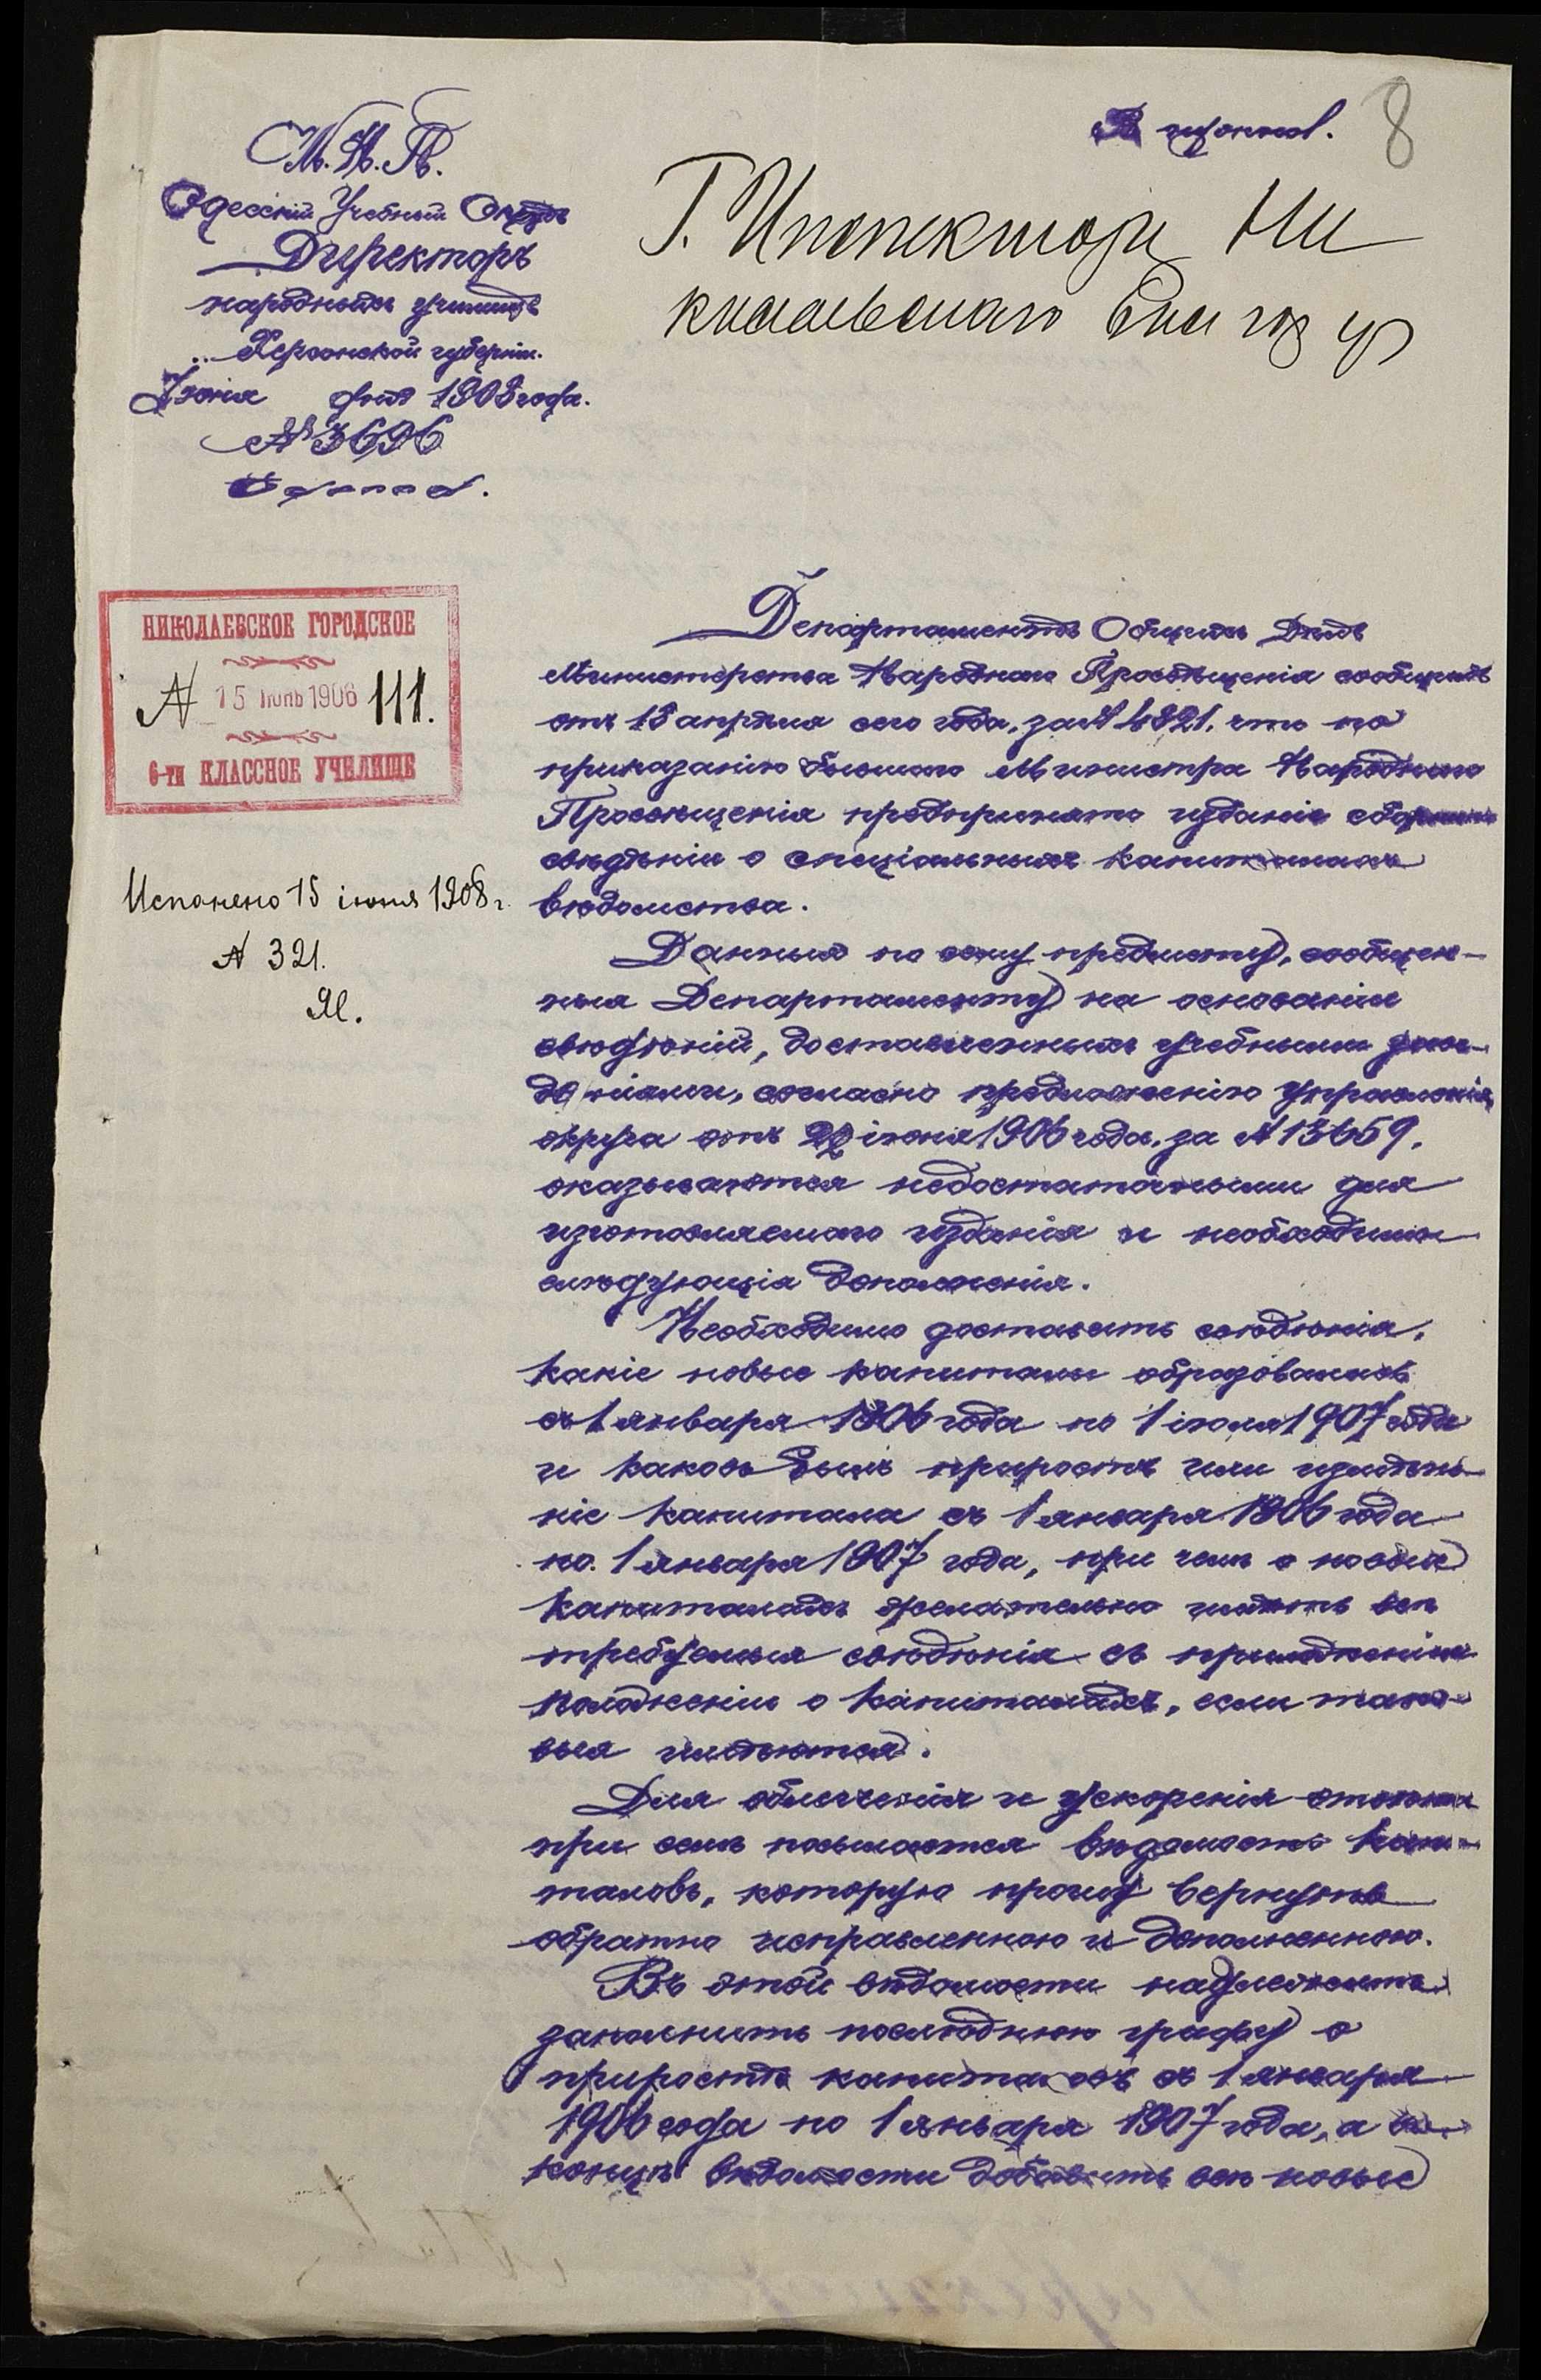 8
М. Н. П.
Одесскій Учебный Округъ
Директоръ
народныхъ училищъ
Херсонской губерніи.
Іюня дня 1908 года.
№ 3696
Г. Инспектору Ни
колаевскаго 6 кл гор уч
НИКОЛАЕВСКОЕ ГОРОДСКОЕ
№ 15 Іюнь 1906 111.
6-ти КЛАССНОЕ УЧИЛИЩЕ
Исполнено 15 іюня 1908 г.
№ 321.
Департаментъ Общихъ Дѣлъ
Министерства Народнаго Просвѣщенія сообщилъ
отъ 18 апрѣля сего года, за № 4821, что по
приказанію бывшаго Министра Народнаго
Просвѣщенія предпринято изданіе сборника
свѣдѣній о спеціальныхъ капиталахъ
вѣдомства.
Данныя по сему предмету, сообщен-
ныя Департаменту на основаніи
свѣдѣній, доставленныхъ учебными заве-
деніями, согласно предложенію Управленія
округа отъ іюня 1906 года, за № 13659,
оказываются недостаточными для
изготовляемаго изданія и необходимы
слѣдующія дополненія.
Необходимо доставить свѣдѣнія,
какіе новые капиталы образовались
съ 1 января 1906 года по 1 іюля 1907 года
и каковъ былъ приростъ или измѣне-
ніе капитала съ 1 января 1906 года
по 1 января 1907 года, при чемъ о новыхъ
капиталахъ желательно имѣть всѣ
требуемыя свѣдѣнія съ приложеніемъ
положеній о капиталахъ, если тако-
выя имѣются.
Для облегченія и ускоренія
при семъ посылается вѣдомость капи-
таловъ, которую прошу вернуть
обратно исправленною и дополненною.
Въ этой вѣдомости надлежитъ
заполнить послѣднюю графу о
приростѣ капиталовъ съ 1 января
1906 года по 1 января 1907 года, а въ
концѣ вѣдомости добавить всѣ новые